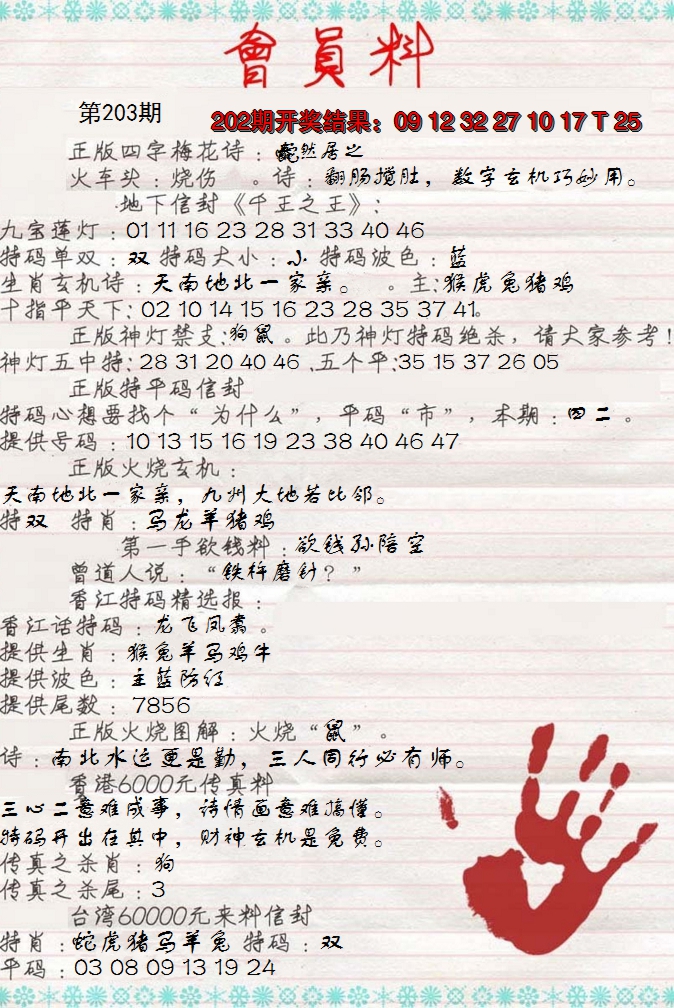 會員料
第203期
202期开奖结果：09 12 32 27 10 17 T 25
正版四字梅花诗：然居之
火车头：烧伤 。诗：翻肠搅肚，数字玄机巧妙用。
地下信封《千王之王》：
九宝莲灯：01 11 16 23 28 31 33 40 46
特码单双：双 特码大小：小 特码波色：蓝
生肖玄机诗：天南地北一家亲。 。主：猴虎兔猪鸡
十指平天下：02 10 14 15 16 23 28 35 37 41。
正版神灯禁支：狗鼠。此乃神灯特码绝杀，请大家参考！
神灯五中特：28 31 20 40 46 .五个平：35 15 37 26 05
正版特平码信封
特码心想要找个“为什么”，平码“市”，本期：四二。
提供号码：10 13 15 16 19 23 38 40 46 47
正版火烧玄机：
天南地北一家亲，九州大地若比邻。
特双 特肖：马龙羊猪鸡
第一手欲钱料：欲钱孙陪空
曾道人说：“铁杵磨针？”
香江特码精选报：
香江话特码：龙飞凤翥。
提供生肖：猴兔羊马鸡牛
提供波色：主蓝防红
提供尾数：7856
正版火烧图解：火烧“鼠”。
诗：南北水运更是勤，三人同行必有师。
香港6000元传真料
三心二意难成事，诗情画意难搞懂。
特码开出在其中，财神玄机是免费。
传真之杀肖：狗
传真之杀尾：3
台湾60000元来料信封
特肖：蛇虎猪马羊兔 特码：双
平码：03 08 09 13 19 24